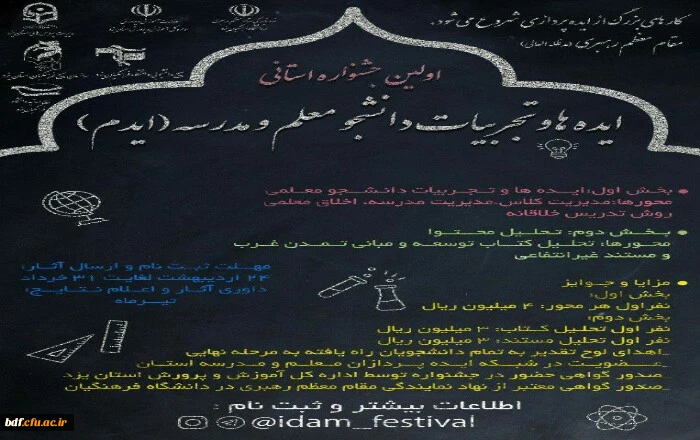 کارهای بزرگ از ایده پردازی شروع می شود.
مقام معظم رهبری (مدظله العالی)
اولین جشنواره استانی
ایده ها و تجربیات دانشجو معلم و مدرسه (ایدم)
بخش اول: ایده ها و تجربیات دانشجو معلمی
محورها: مدیریت کلاس، مدیریت مدرسه، اخلاق معلمی
روش تدریس خلاقانه
بخش دوم: تحلیل محتوا
محورها: تحلیل کتاب توسعه و مبانی تمدن غرب
و مستند غیرانتفاعی
مهلت ثبت نام و ارسال آثار:
۲۴ اردیبهشت لغایت ۳۱ خرداد
داوری آثار و اعلام نتایج:
تیرماه
مزایا و جوایز
بخش اول:
نفر اول هر محور: ۴ میلیون ریال
بخش دوم:
نفر اول تحلیل کتاب: ۳ میلیون ریال
نفر اول تحلیل مستند: ۳ میلیون ریال
_اهدای لوح تقدیر به تمام دانشجویان راه یافته به مرحله نهایی
_عضویت در شبکه ایده پردازان معلم و مدرسه استان
_صدور گواهی حضور در جشنواره توسط اداره کل آموزش و پرورش استان یزد
_صدور گواهی معتبر از نهاد نمایندگی مقام معظم رهبری در دانشگاه فرهنگیان
اطلاعات بیشتر و ثبت نام :
@idam_festival
bdf.cfu.ac.ir